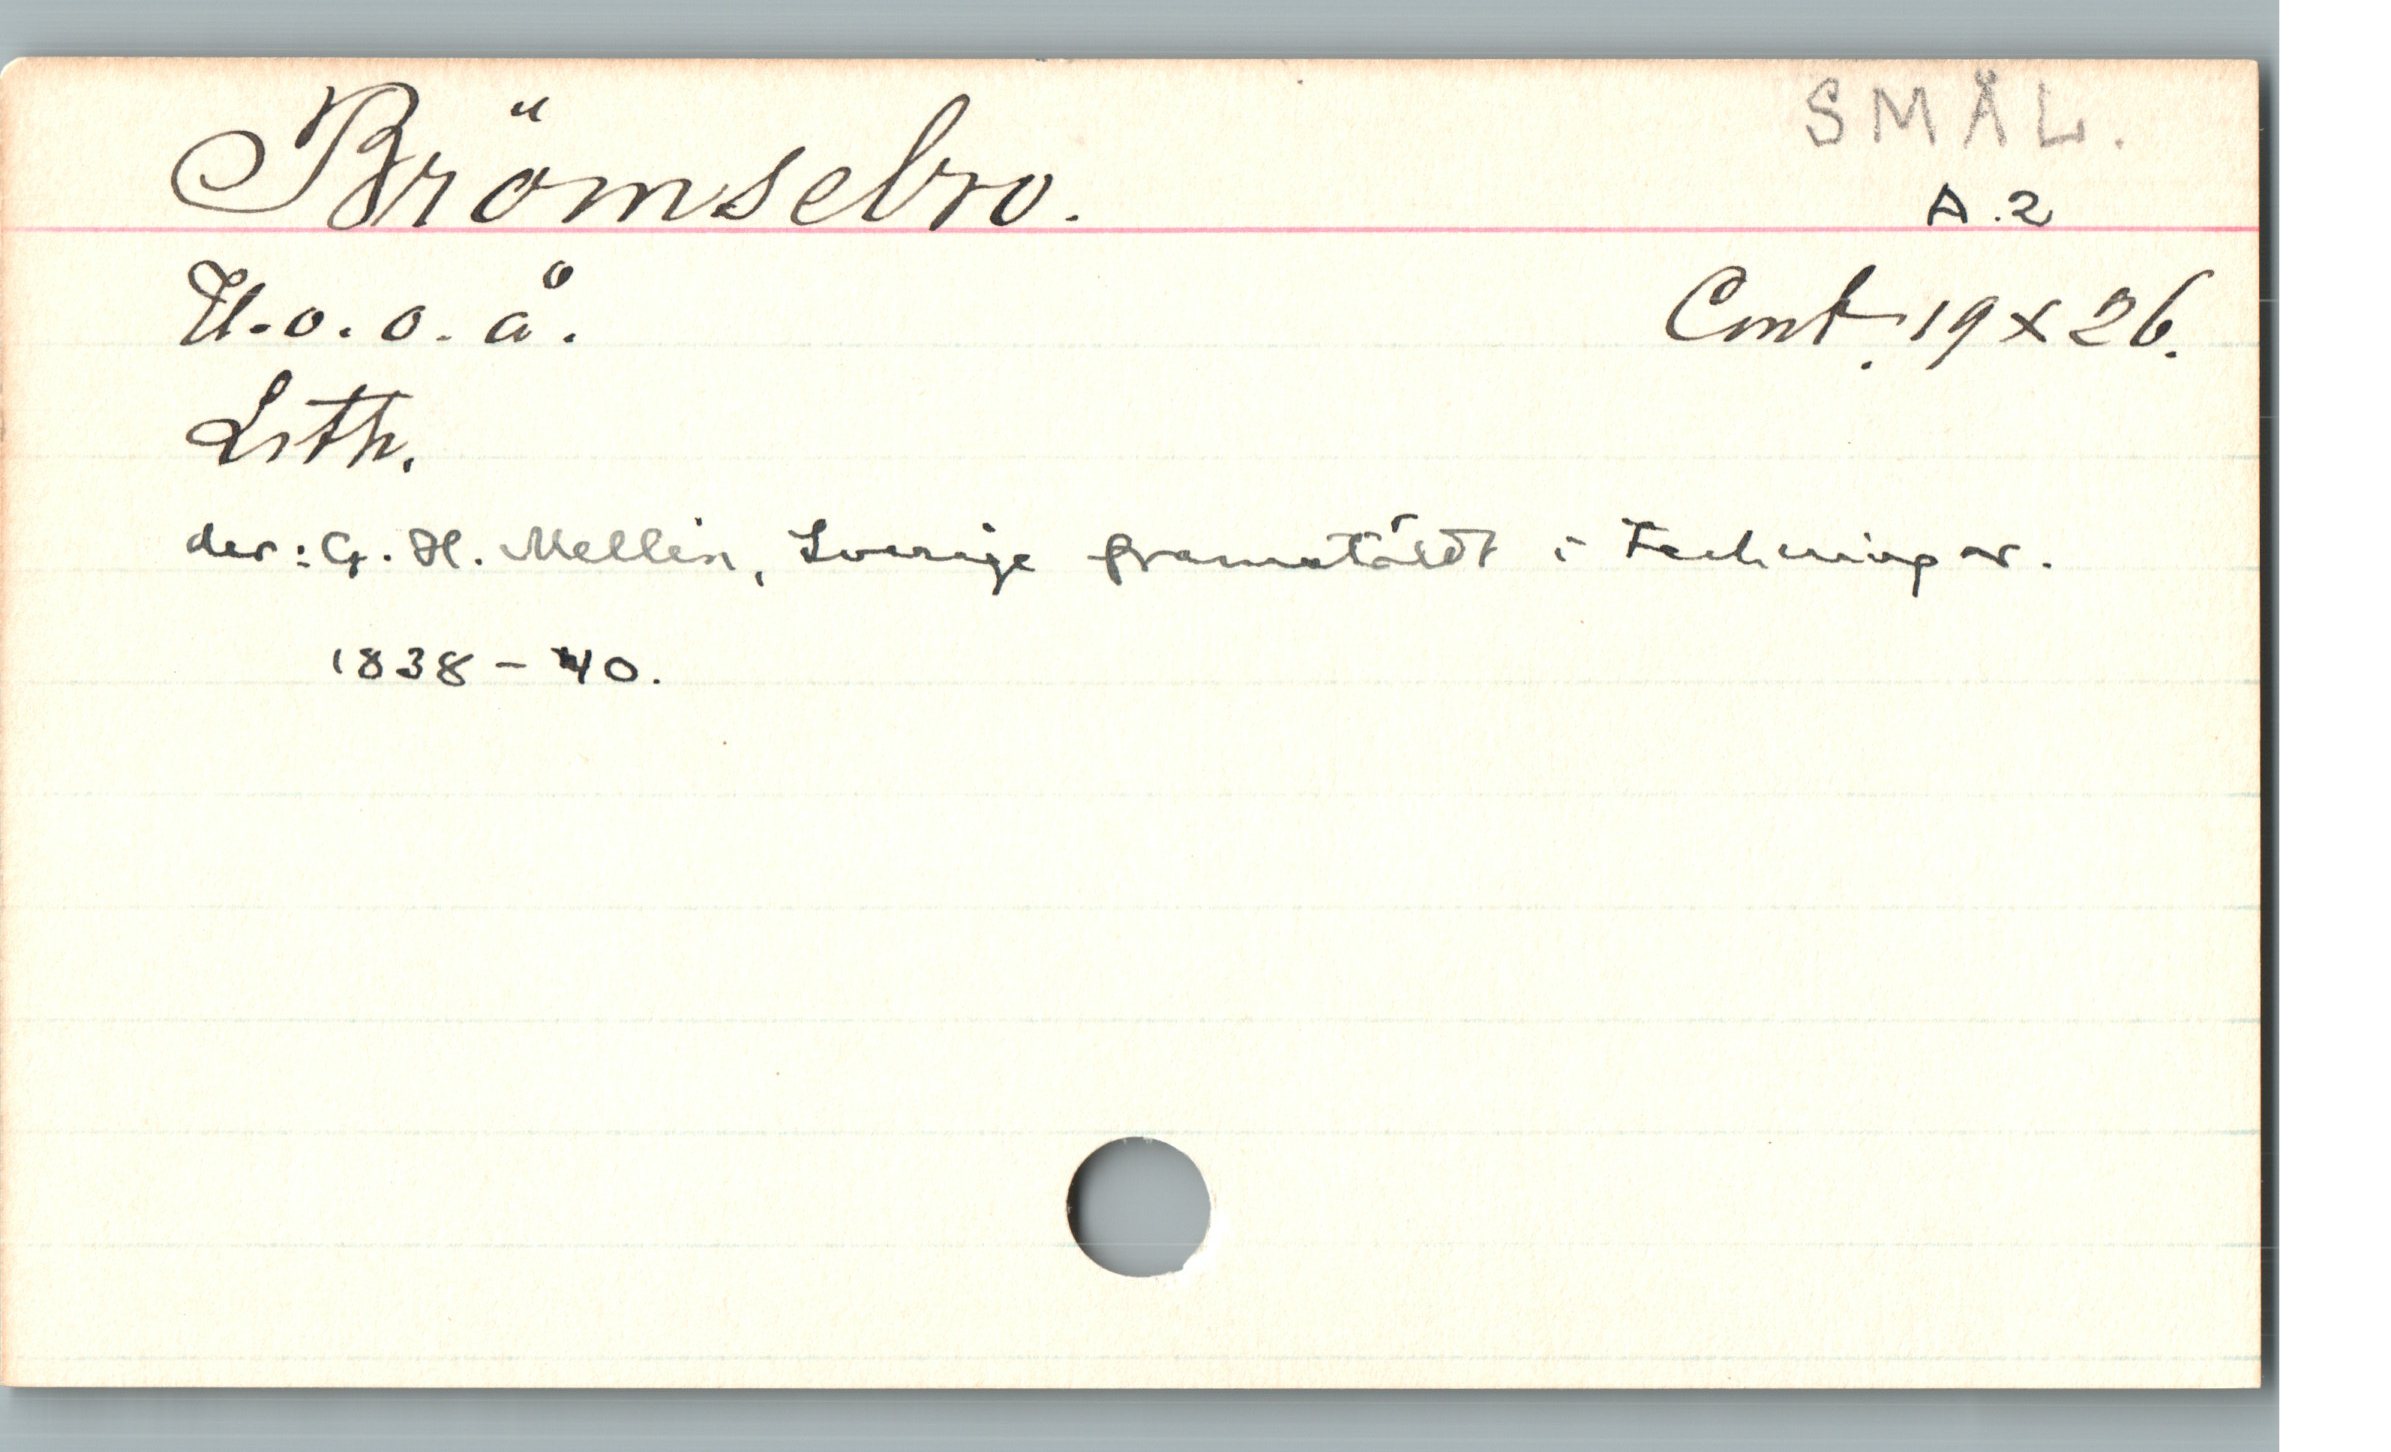 SMÅL.
Brömsebro.
A.2
U.o.o.å.
Cont. 19x26.
Lith.
der: G.H. Mellin, Sverige framställdt i Teckningar.
1838-40.